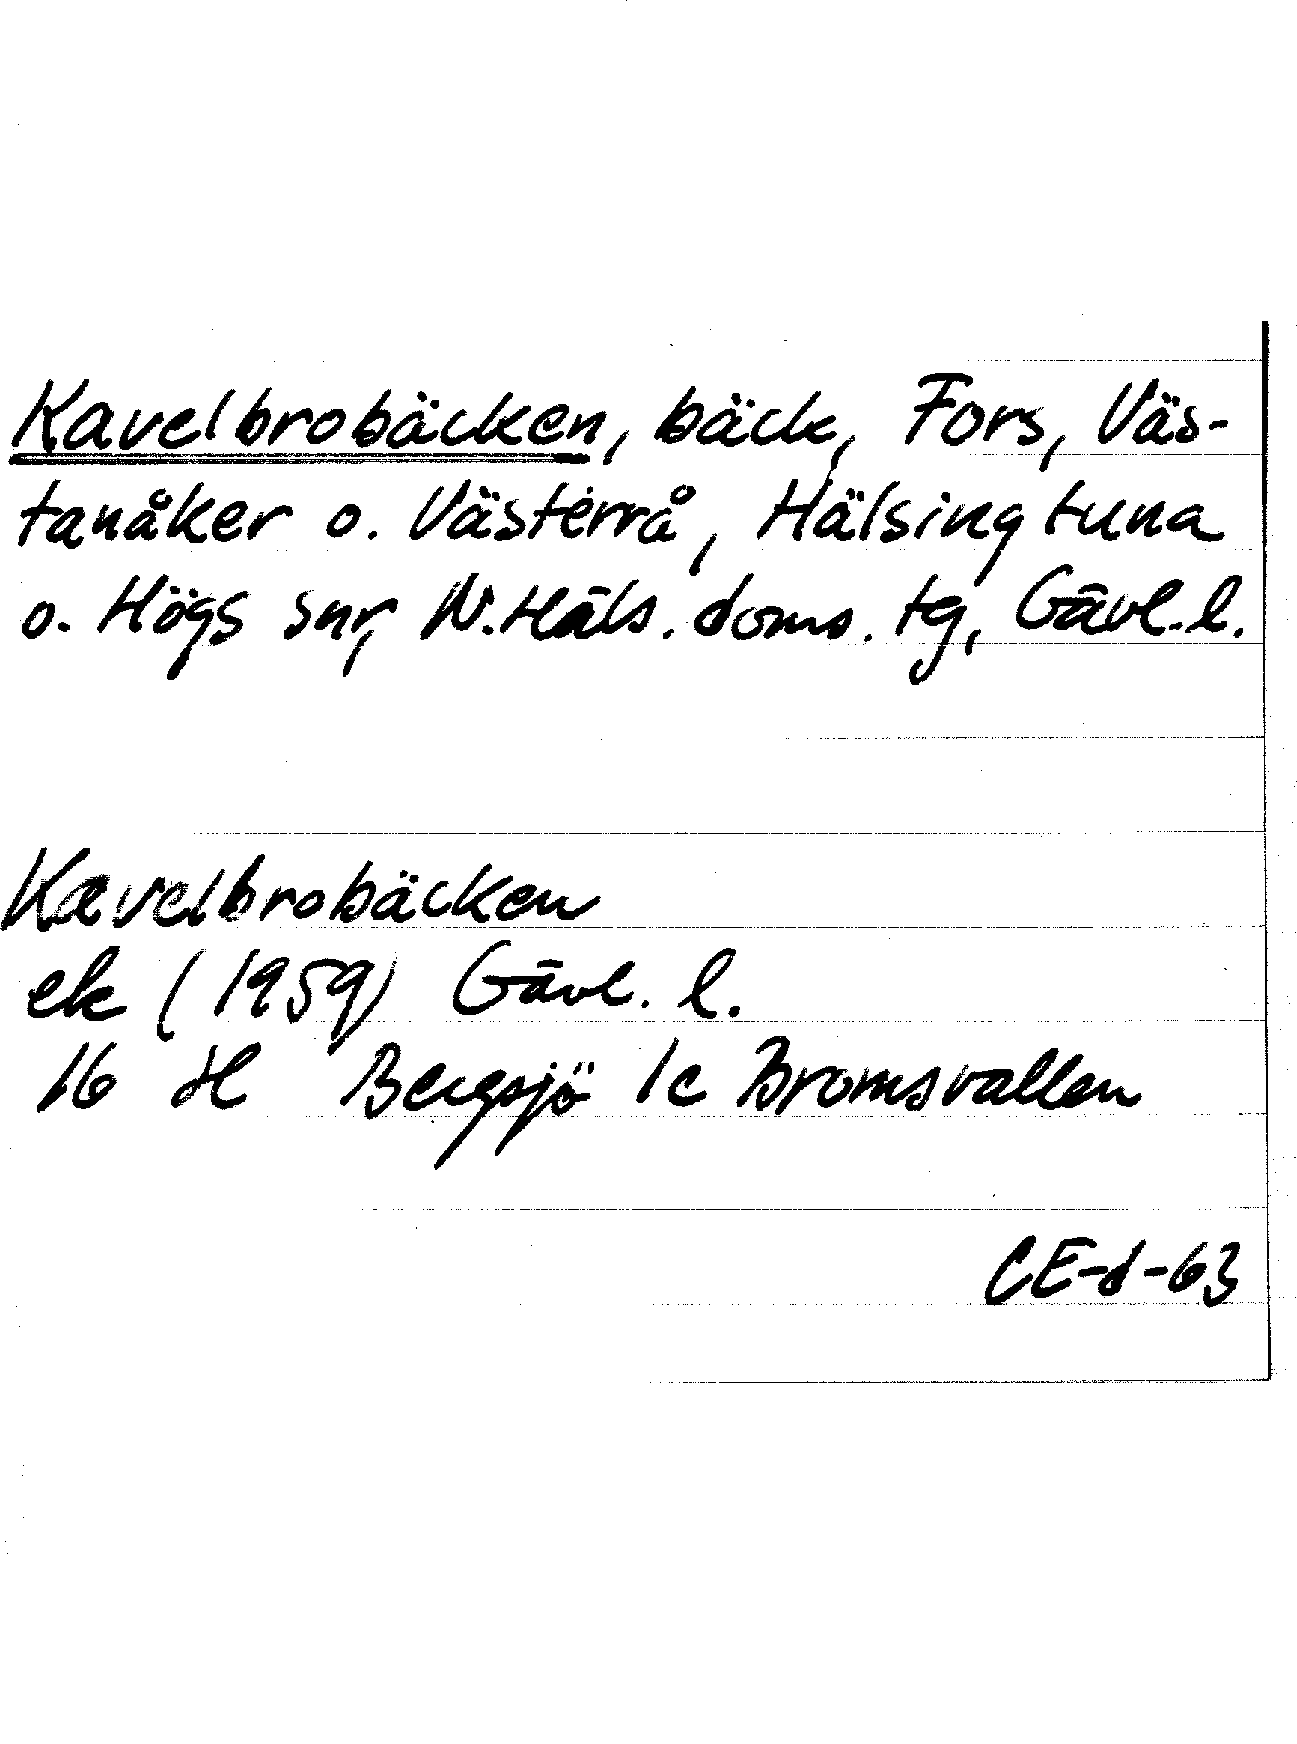 Kavelbrobäcken, bäck, Fors, Väs-
tanåker o. Västerrå, Hälsingtuna
o. Högs snr, N.Häls. doms. tg, Gävl. l.
Kavelbrobäcken
ek (1959) Gävl. l.
16 H Bergsjö 1c Bromsvallen
CE-d-63